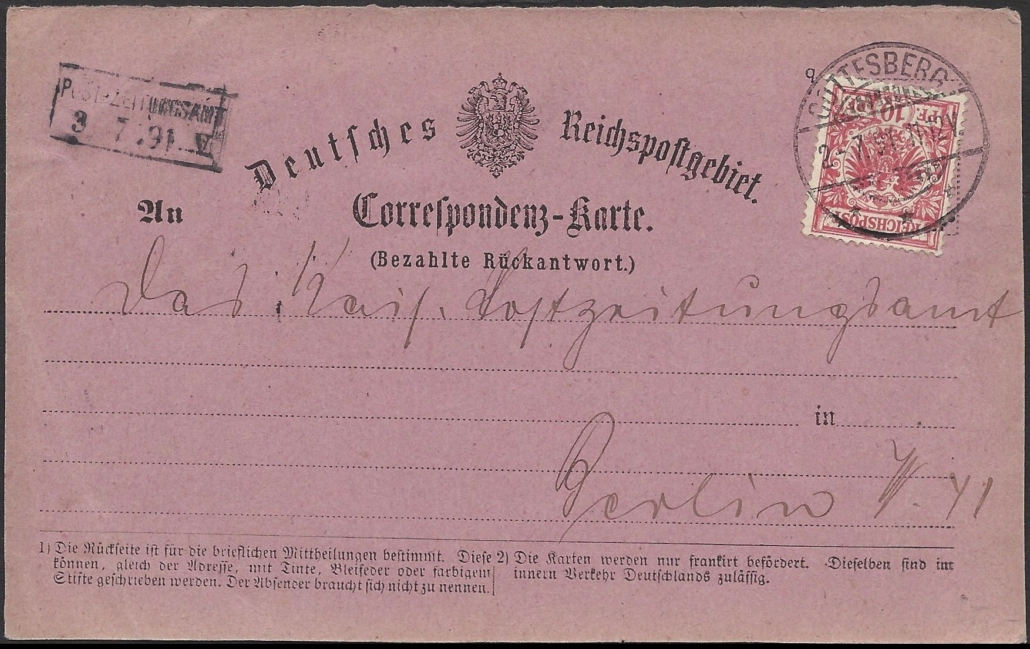 POST-ZEITUNGSAMT
3 7 .91 V
GOTTESBERG
2. 7. 91. 11-12 V
10 PF 10
REICHSPOST
Deutsches Reichspostgebiet.
An
Correspondenz-Karte.
(Bezahlte Rückantwort.)
Das Kais. Postzeitungsamt
in
Berlin W. 41
1) Die Rückseite ist für die brieflichen Mittheilungen bestimmt. Diese
können, gleich der Adresse, mit Tinte, Bleifeder oder farbigem
Stifte geschrieben werden. Der Absender braucht sich nicht zu nennen.
2) Die Karten werden nur frankirt befördert. Dieselben sind im
innern Verkehr Deutschlands zulässig.